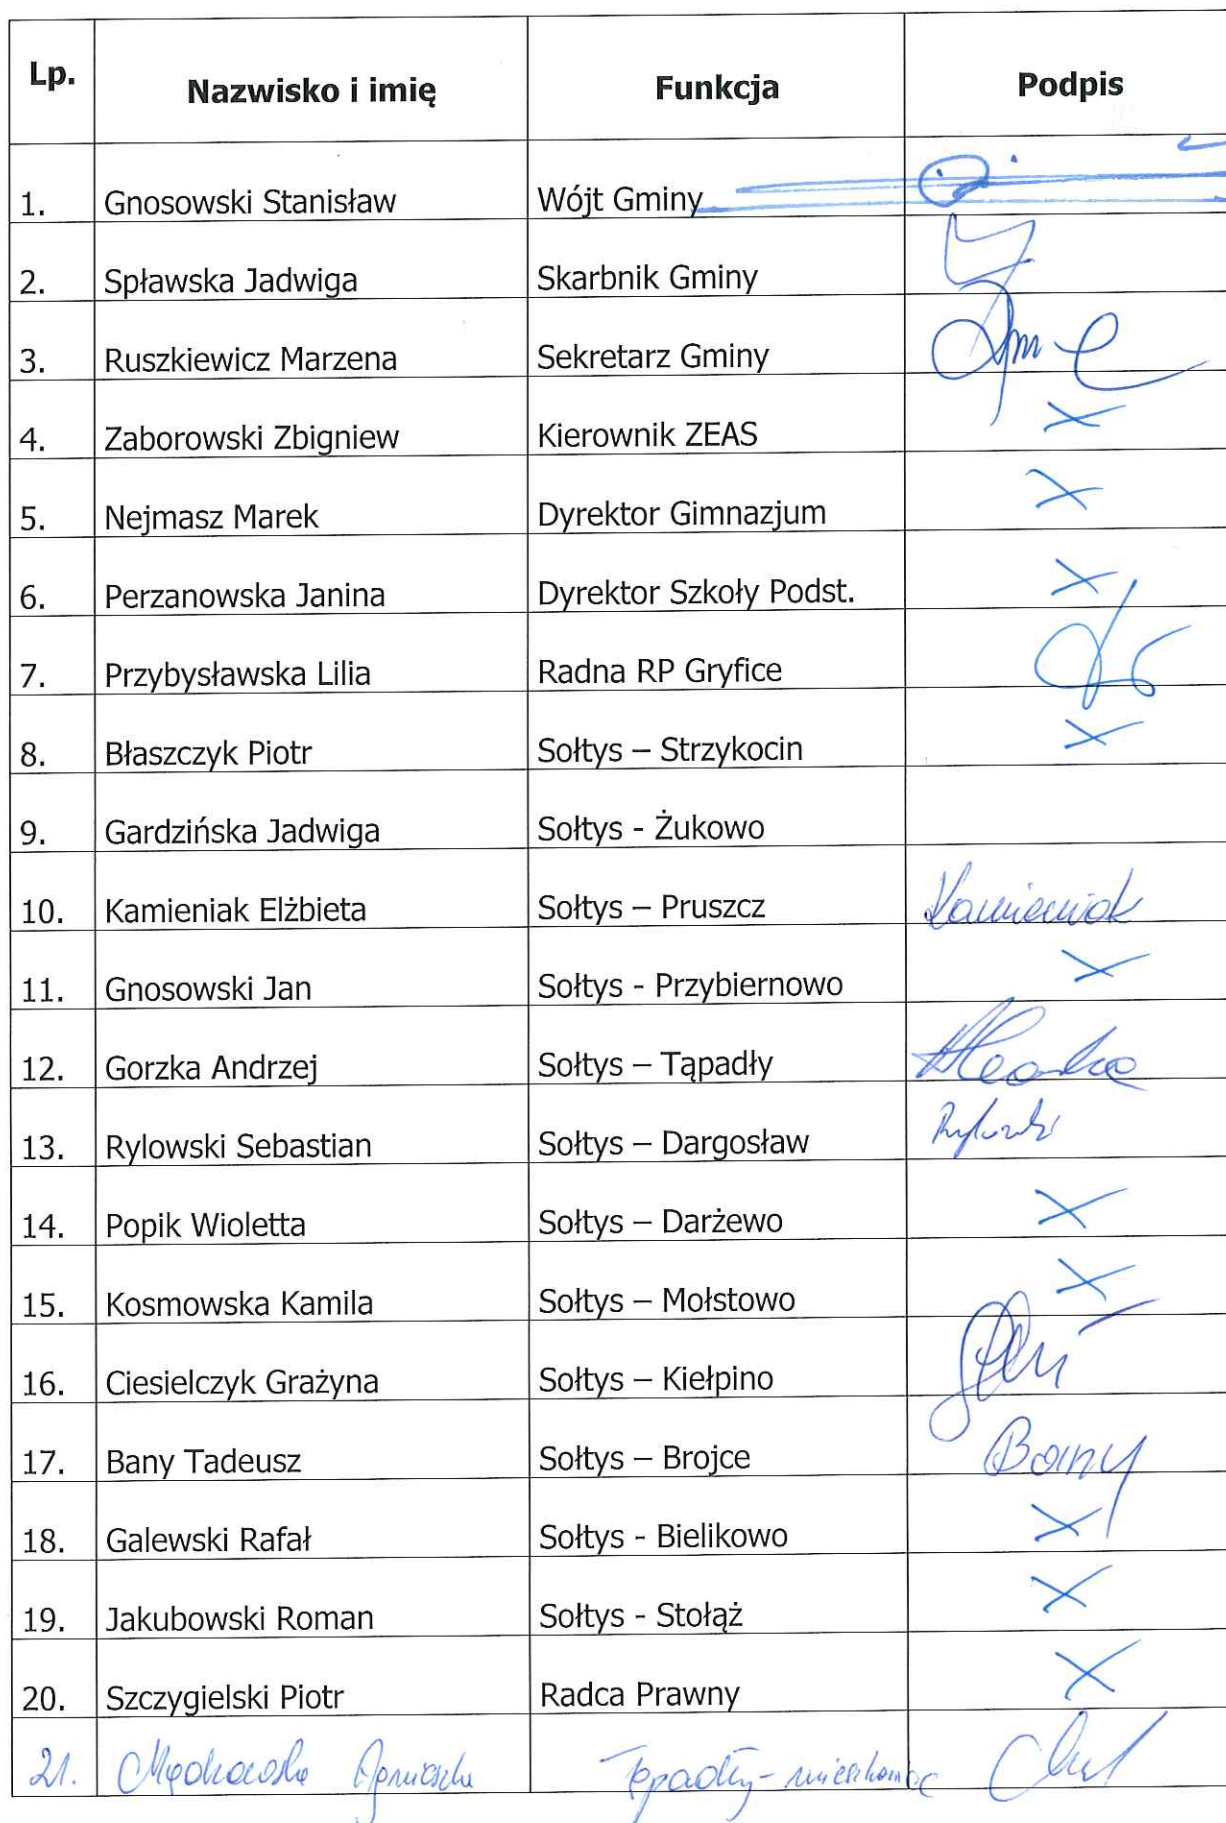 Lp. Nazwisko i imię Funkcja Podpis
1. Gnosowski Stanisław Wójt Gminy
2. Spławska Jadwiga Skarbnik Gminy
3. Ruszkiewicz Marzena Sekretarz Gminy
4. Zaborowski Zbigniew Kierownik ZEAS X
5. Nejmasz Marek Dyrektor Gimnazjum X
6. Perzanowska Janina Dyrektor Szkoły Podst. X
7. Przybysławska Lilia Radna RP Gryfice
8. Błaszczyk Piotr Sołtys – Strzykocin X
9. Gardzińska Jadwiga Sołtys - Żukowo
10. Kamieniak Elżbieta Sołtys – Pruszcz Kamieniak
11. Gnosowski Jan Sołtys - Przybiernowo X
12. Gorzka Andrzej Sołtys – Tąpadły
13. Rylowski Sebastian Sołtys – Dargosław Rylowski
14. Popik Wioletta Sołtys – Darżewo X
15. Kosmowska Kamila Sołtys – Mołstowo X
16. Ciesielczyk Grażyna Sołtys – Kiełpino
17. Bany Tadeusz Sołtys – Brojce Bany
18. Galewski Rafał Sołtys - Bielikowo X
19. Jakubowski Roman Sołtys - Stołąż X
20. Szczygielski Piotr Radca Prawny X
21. Agnieszka Tąpadły - mieszkaniec